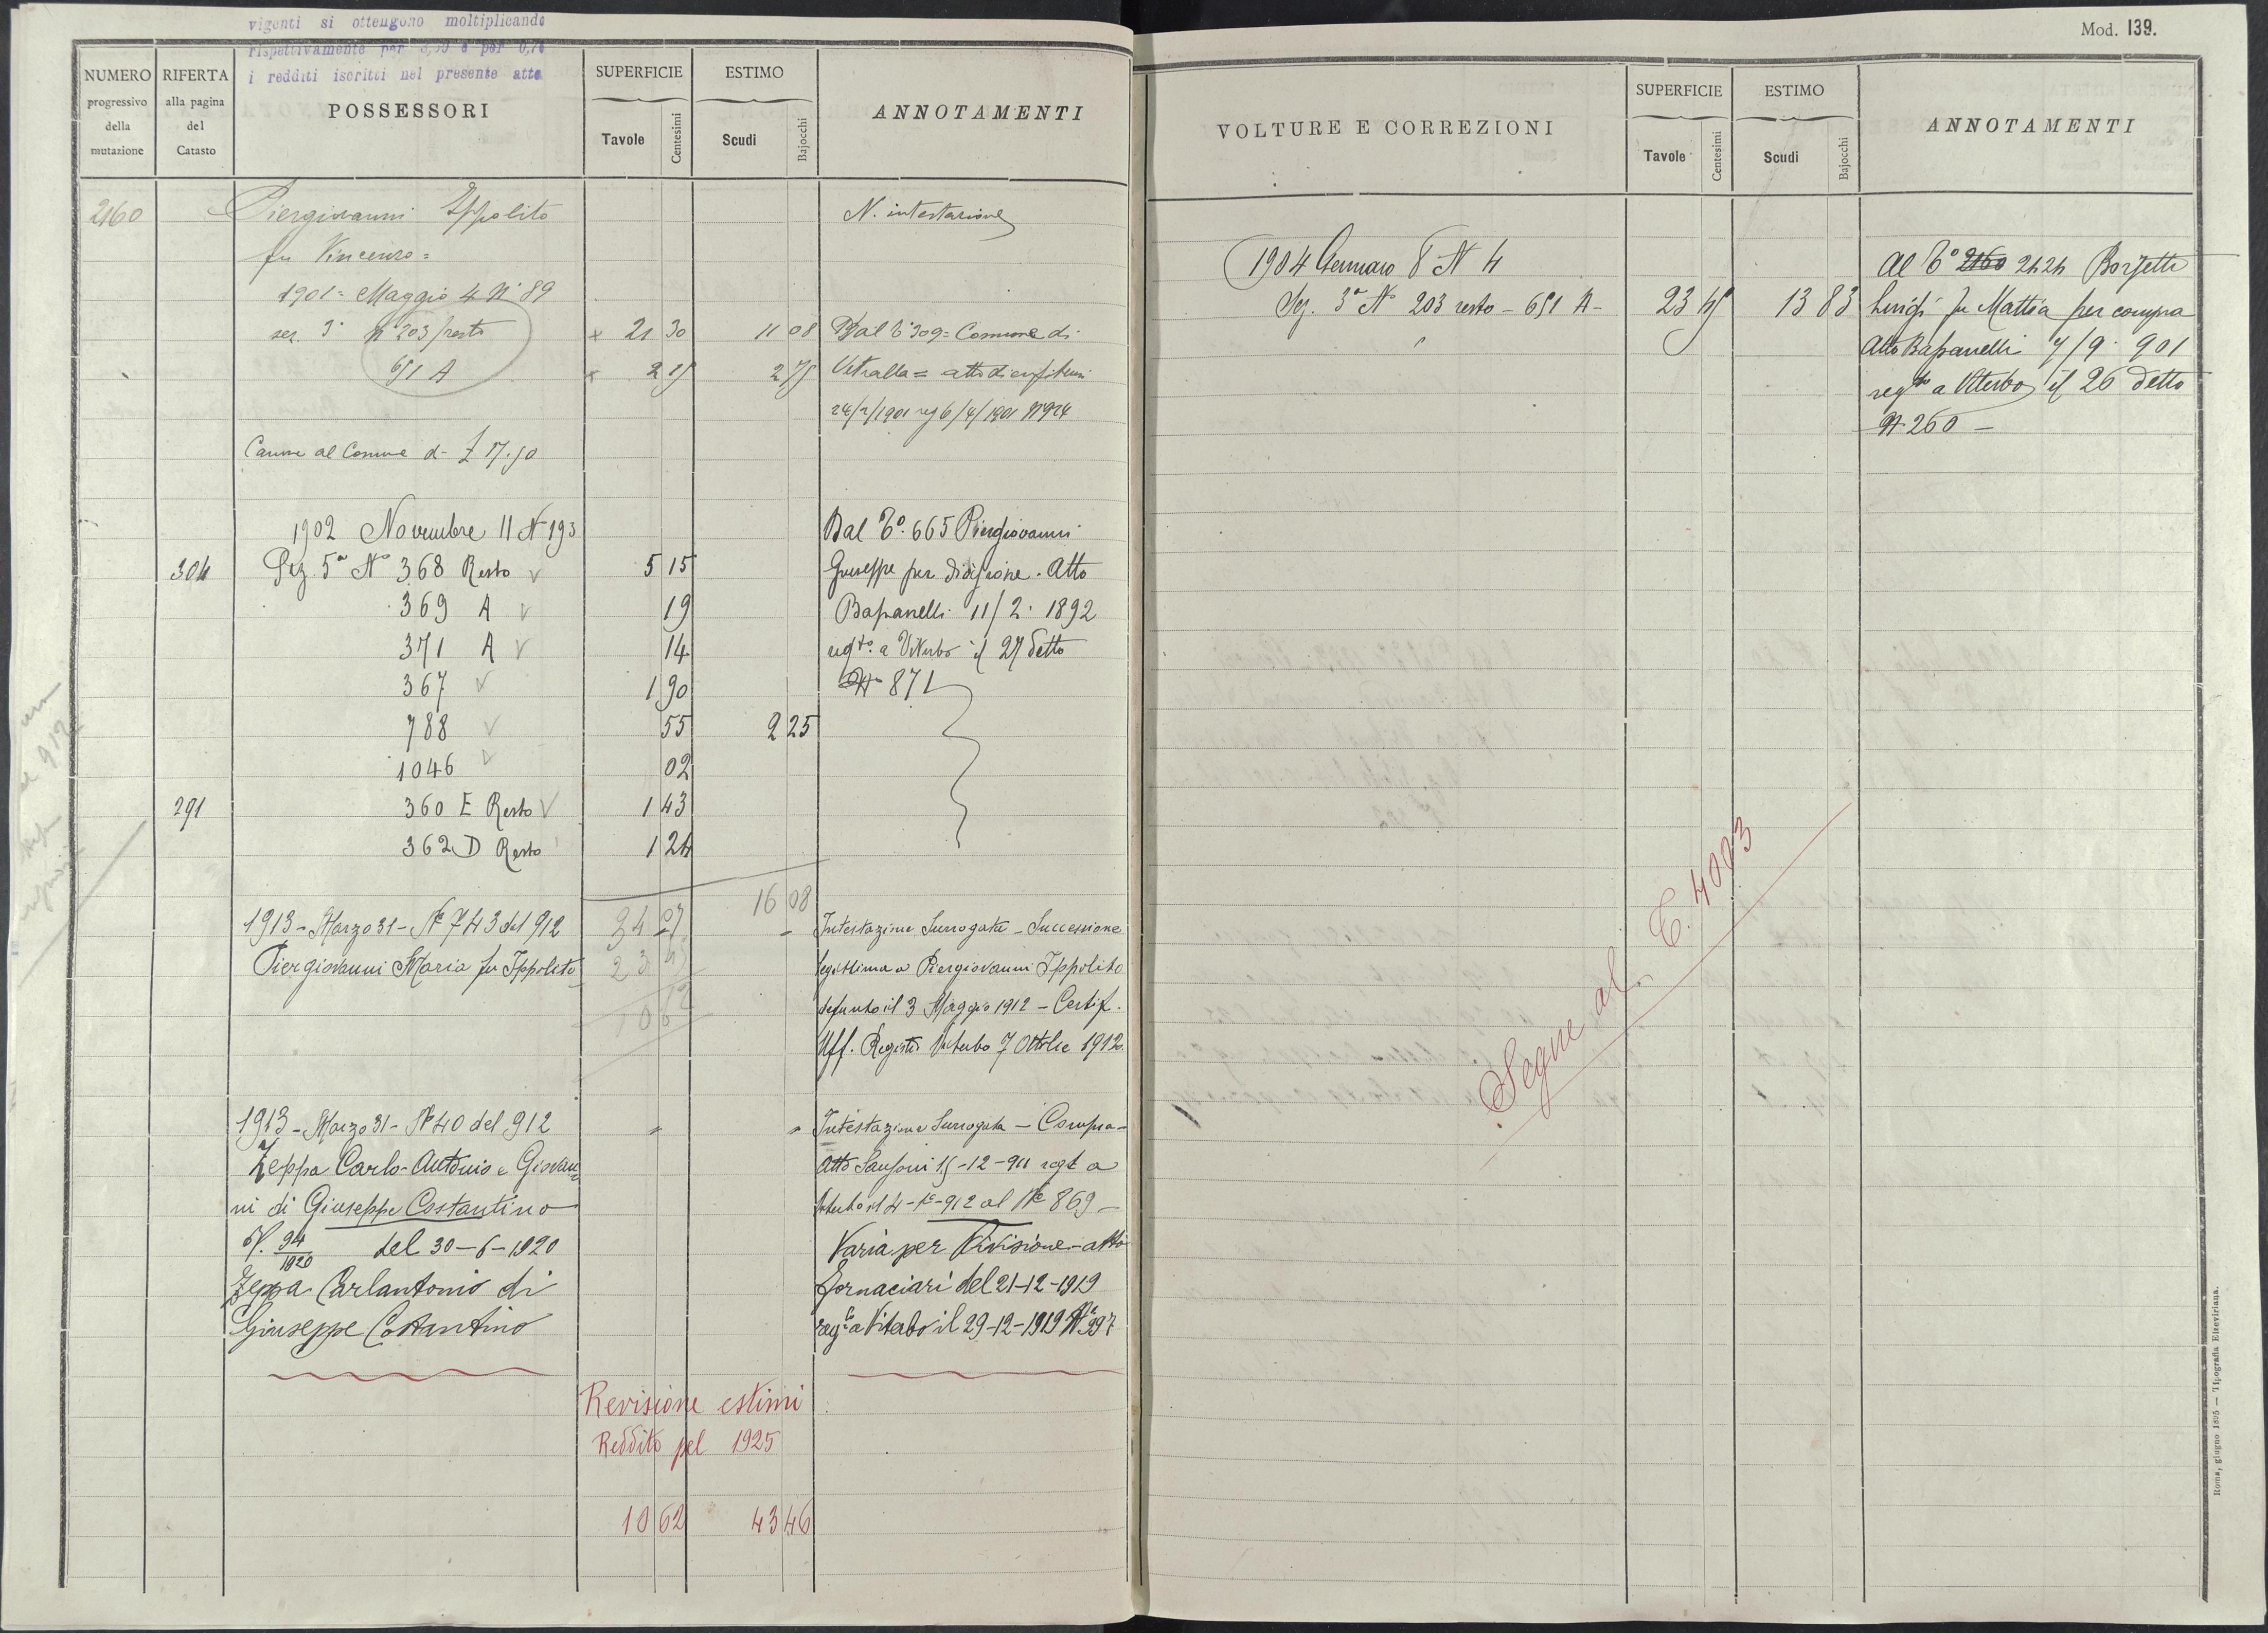 vigenti si ottengono moltiplicando
rispettivamente per e per 0,7
i redditi iscritti nel presente atto
NUMERO
progressivo
della
mutazione
RIFERTA
alla pagina
del
Catasto
POSSESSORI
SUPERFICIE
Tavole Centesimi
ESTIMO
Scudi Bajocchi
ANNOTAMENTI
2160 Piergiovanni Ippolito N. intestazione
fu Vincenzo =
1901 = Maggio 4 N° 89
sez. 3ª N° 203 resto × 21 30 11 08 Dal T° 309 = Comune di
651 A × 2 15 2 75 Vetralla = atto di
24/2/1901 reg 6/4/1901 N° 924
Canone al Comune d- £ 17.50
1902 Novembre 11 N° 193 Dal T°. 665 Piergiovanni
304 Sez. 5ª N° 368 Resto v 5 15 Giuseppe per divisione. Atto
369 A v 19 Bassanelli 11/2. 1892
371 A v 14 regto. a Viterbo il 27 detto
367 v 1 90 N° 871
788 v 55 2 25
1046 v 02
291 360 E Resto v 1 43
362 D Resto 1 24
16 08
1913 - Marzo 31 - N° 743 del 912 34 07 Intestazione Surrogata - Successione
Piergiovanni Maria fu Ippolito 23 45 legittima a Piergiovanni Ippolito
10 62 defunto il 3 Maggio 1912 - Certif.
Uff. Registro Viterbo 7 Ottobre 1912
1913 - Marzo 31 - N° 40 del 912 " " Intestazione Surrogata - Compra -
Zeppa Carlo-Antonio e Giovan= Atto Sansoni 15-12-911 regt a
ni di Giuseppe Costantino Viterbo il 4-1°-912 al N° 869 -
N. 94/1920 del 30-6-1920 Varia per Divisione - atto
Zeppa Carlantonio di Fornaciari del 21-12-1919
Giuseppe Costantino regto a Viterbo il 29-12-1919 N° 997
Revisione estimi
Reddito pel 1925
10 62 43 46
Mod. 139.
VOLTURE E CORREZIONI
SUPERFICIE
Tavole Centesimi
ESTIMO
Scudi Bajocchi
ANNOTAMENTI
1904 Gennaro 8 N 4 Al T° 2160 2424 Borzetti
Sez. 3ª N° 203 resto - 651 A - 23 45 13 83 Luigi fu Mattia per compra
Atto Bassanelli 7/9. 901
regto a Viterbo il 26 detto
N 260 -
Segue al T. 4003
Roma, giugno 1895 — Tipografia Elzeviriana.